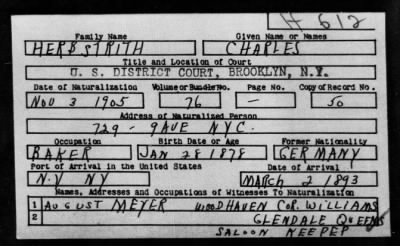 H 612
Family Name Given Name or Names
HERBSTRITH CHARLES
Title and Location of Court
U. S. DISTRICT COURT, BROOKLYN, N.Y.
Date of Naturalization Volume or Bundle No. Page No. Copy of Record No.
NOV 3 1905 76 — 50
Address of Naturalized Person
729 - 9AVE NYC.
Occupation Birth Date or Age Former Nationality
BAKER JAN 28 1878 GERMANY
Port of Arrival in the United States Date of Arrival
N.Y NY MARCH 2 1893
Names, Addresses and Occupations of Witnesses To Naturalization
1 AUGUST MEYER WOODHAVEN COR. WILLIAMS
2 GLENDALE QUEENS
SALOON KEEPER